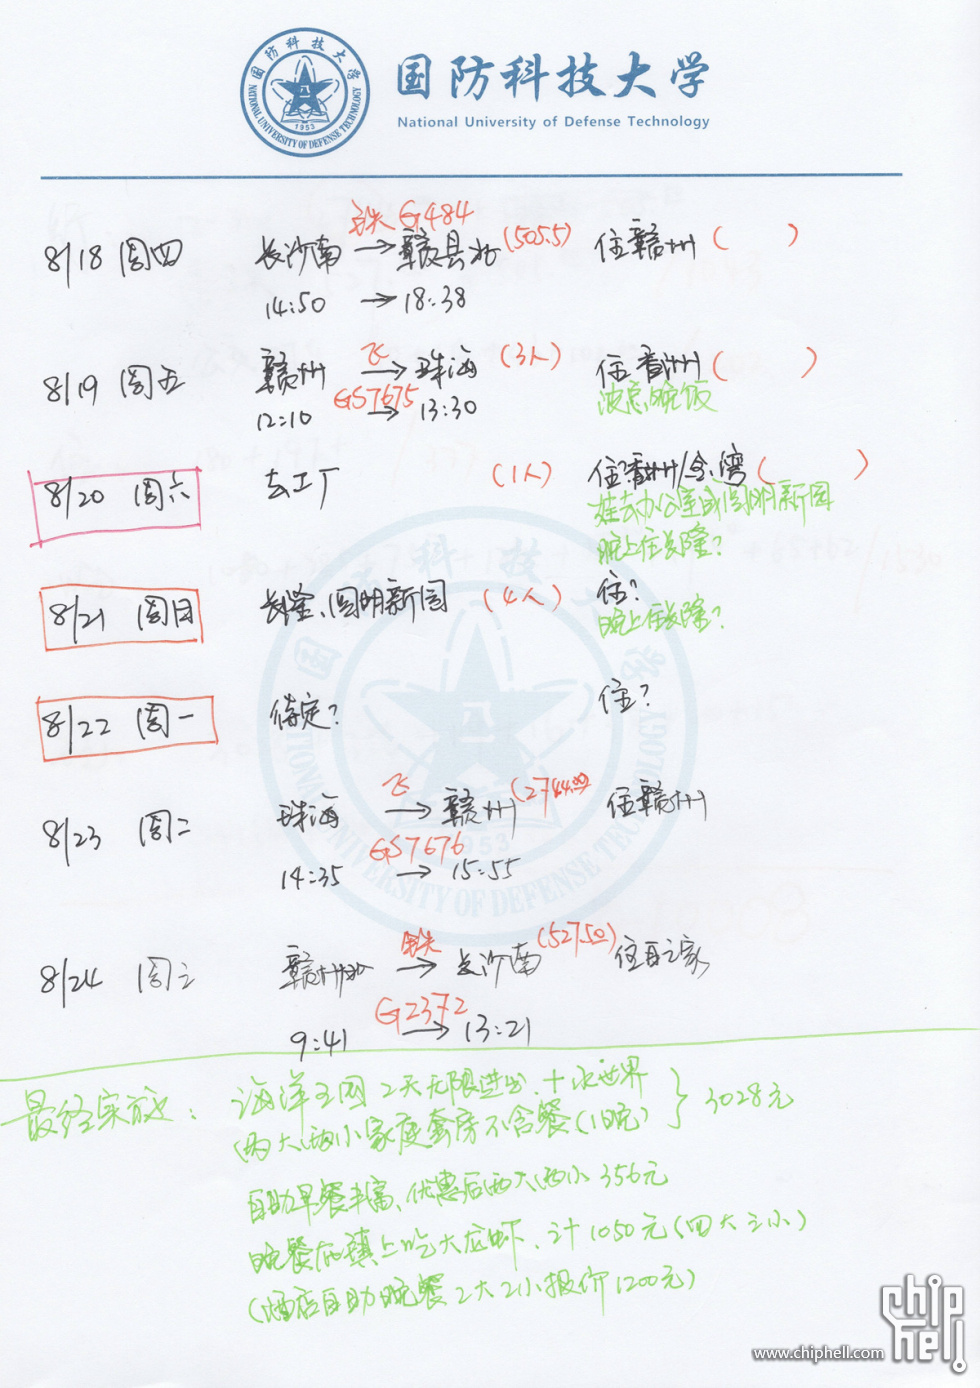 国防科技大学
National University of Defense Technology
国防科技大学
NATIONAL UNIVERSITY OF DEFENSE TECHNOLOGY
1953
高铁 G484
8/18 周四 长沙南 → 赣县北 (505.5) 住赣州 ( )
14:50 → 18:38
飞
8/19 周五 赣州 → 珠海 (3人) 住香州 ( )
GS7675
12:10 → 13:30
晚饭
8/20 周六 去工厂 (1人) 住香州/金湾 ( )
娃去办公室或圆明新园
晚上住长隆?
8/21 周日 长隆、圆明新园 (4人) 住?
晚上住长隆?
8/22 周一 待定? 住?
飞
8/23 周二 珠海 → 赣州 (2744.00) 住赣州
GS7676
14:35 → 15:55
高铁
8/24 周三 赣州北 → 长沙南 (527.50) 住自己家
G2372
9:41 → 13:21
最终实施: 海洋王国2天无限进出 + 水世界
(两大两小家庭套房不含餐(1晚) } 3028元
自助早餐丰富、优惠后两大两小 356元
晚餐在镇上吃大龙虾、计1050元(四大三小)
(酒店自助晚餐2大2小报价1200元)
科技
国
学
八
1953
UNIVERSITY OF DEFENSE TECHNOLOGY
chip
hell
www.chiphell.com